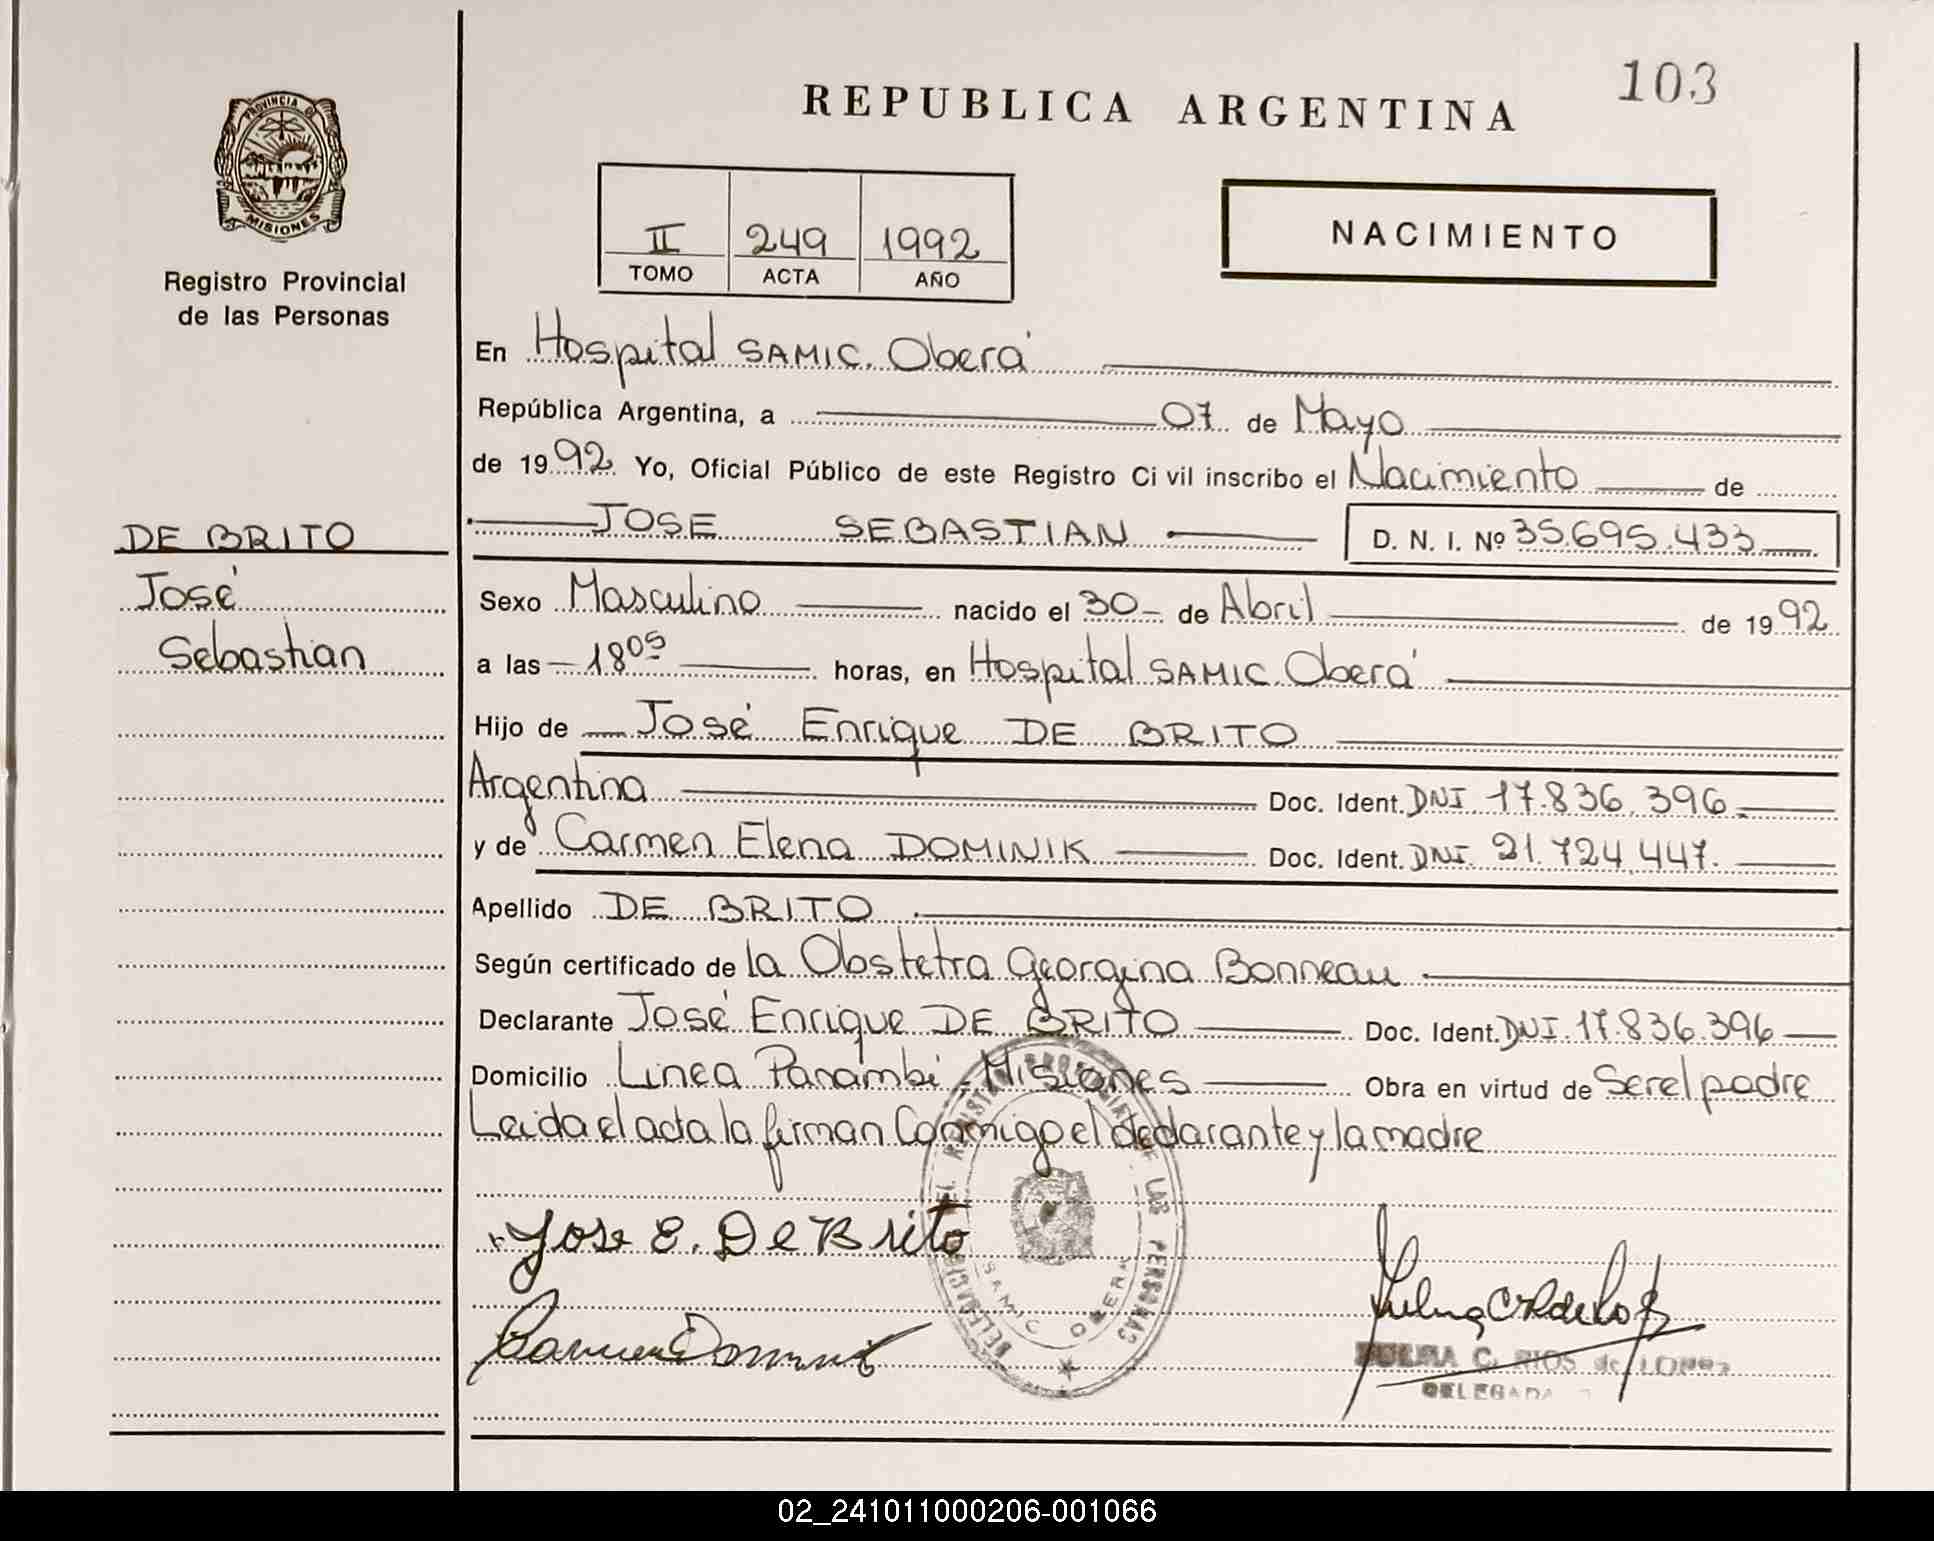 103
REPUBLICA ARGENTINA
PROVINCIA DE MISIONES
Registro Provincial
de las Personas
II 249 1992
TOMO ACTA AÑO
NACIMIENTO
En Hospital SAMIC. Oberá
República Argentina, a 07 de Mayo
de 1992 Yo, Oficial Público de este Registro Ci vil inscribo el Nacimiento de
JOSE SEBASTIAN D. N. I. Nº 35.695.433
DE BRITO
José
Sebastian
Sexo Masculino nacido el 30 de Abril de 1992
a las 18 05 horas, en Hospital SAMIC. Oberá
Hijo de José Enrique DE BRITO
Argentina Doc. Ident. DNI 17.836.396
y de Carmen Elena DOMINIK Doc. Ident. DNI. 21.724.447.
Apellido DE BRITO
Según certificado de la Obstetra Georgina Bonneau
Declarante José Enrique DE BRITO Doc. Ident. DNI. 17.836.396
Domicilio Linea Panambi - Misiones Obra en virtud de Ser el padre
Leida el acta la firman Conmigo el declarante y la madre
Jose E. De Brito
Carmen Dominik
DELEGACION DEL REGISTRO PROVINCIAL DE LAS PERSONAS
SAMIC OBERA
C. RIOS de LOPEZ
DELEGADA
02_241011000206-001066